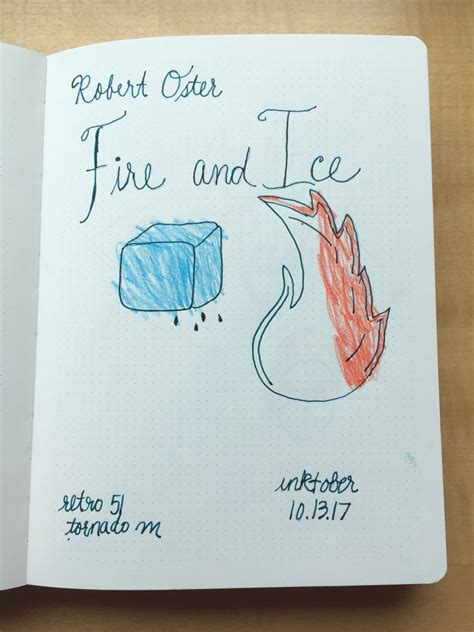 Robert Oster
Fire and Ice
retro 51
tornado m
inktober
10.13.17